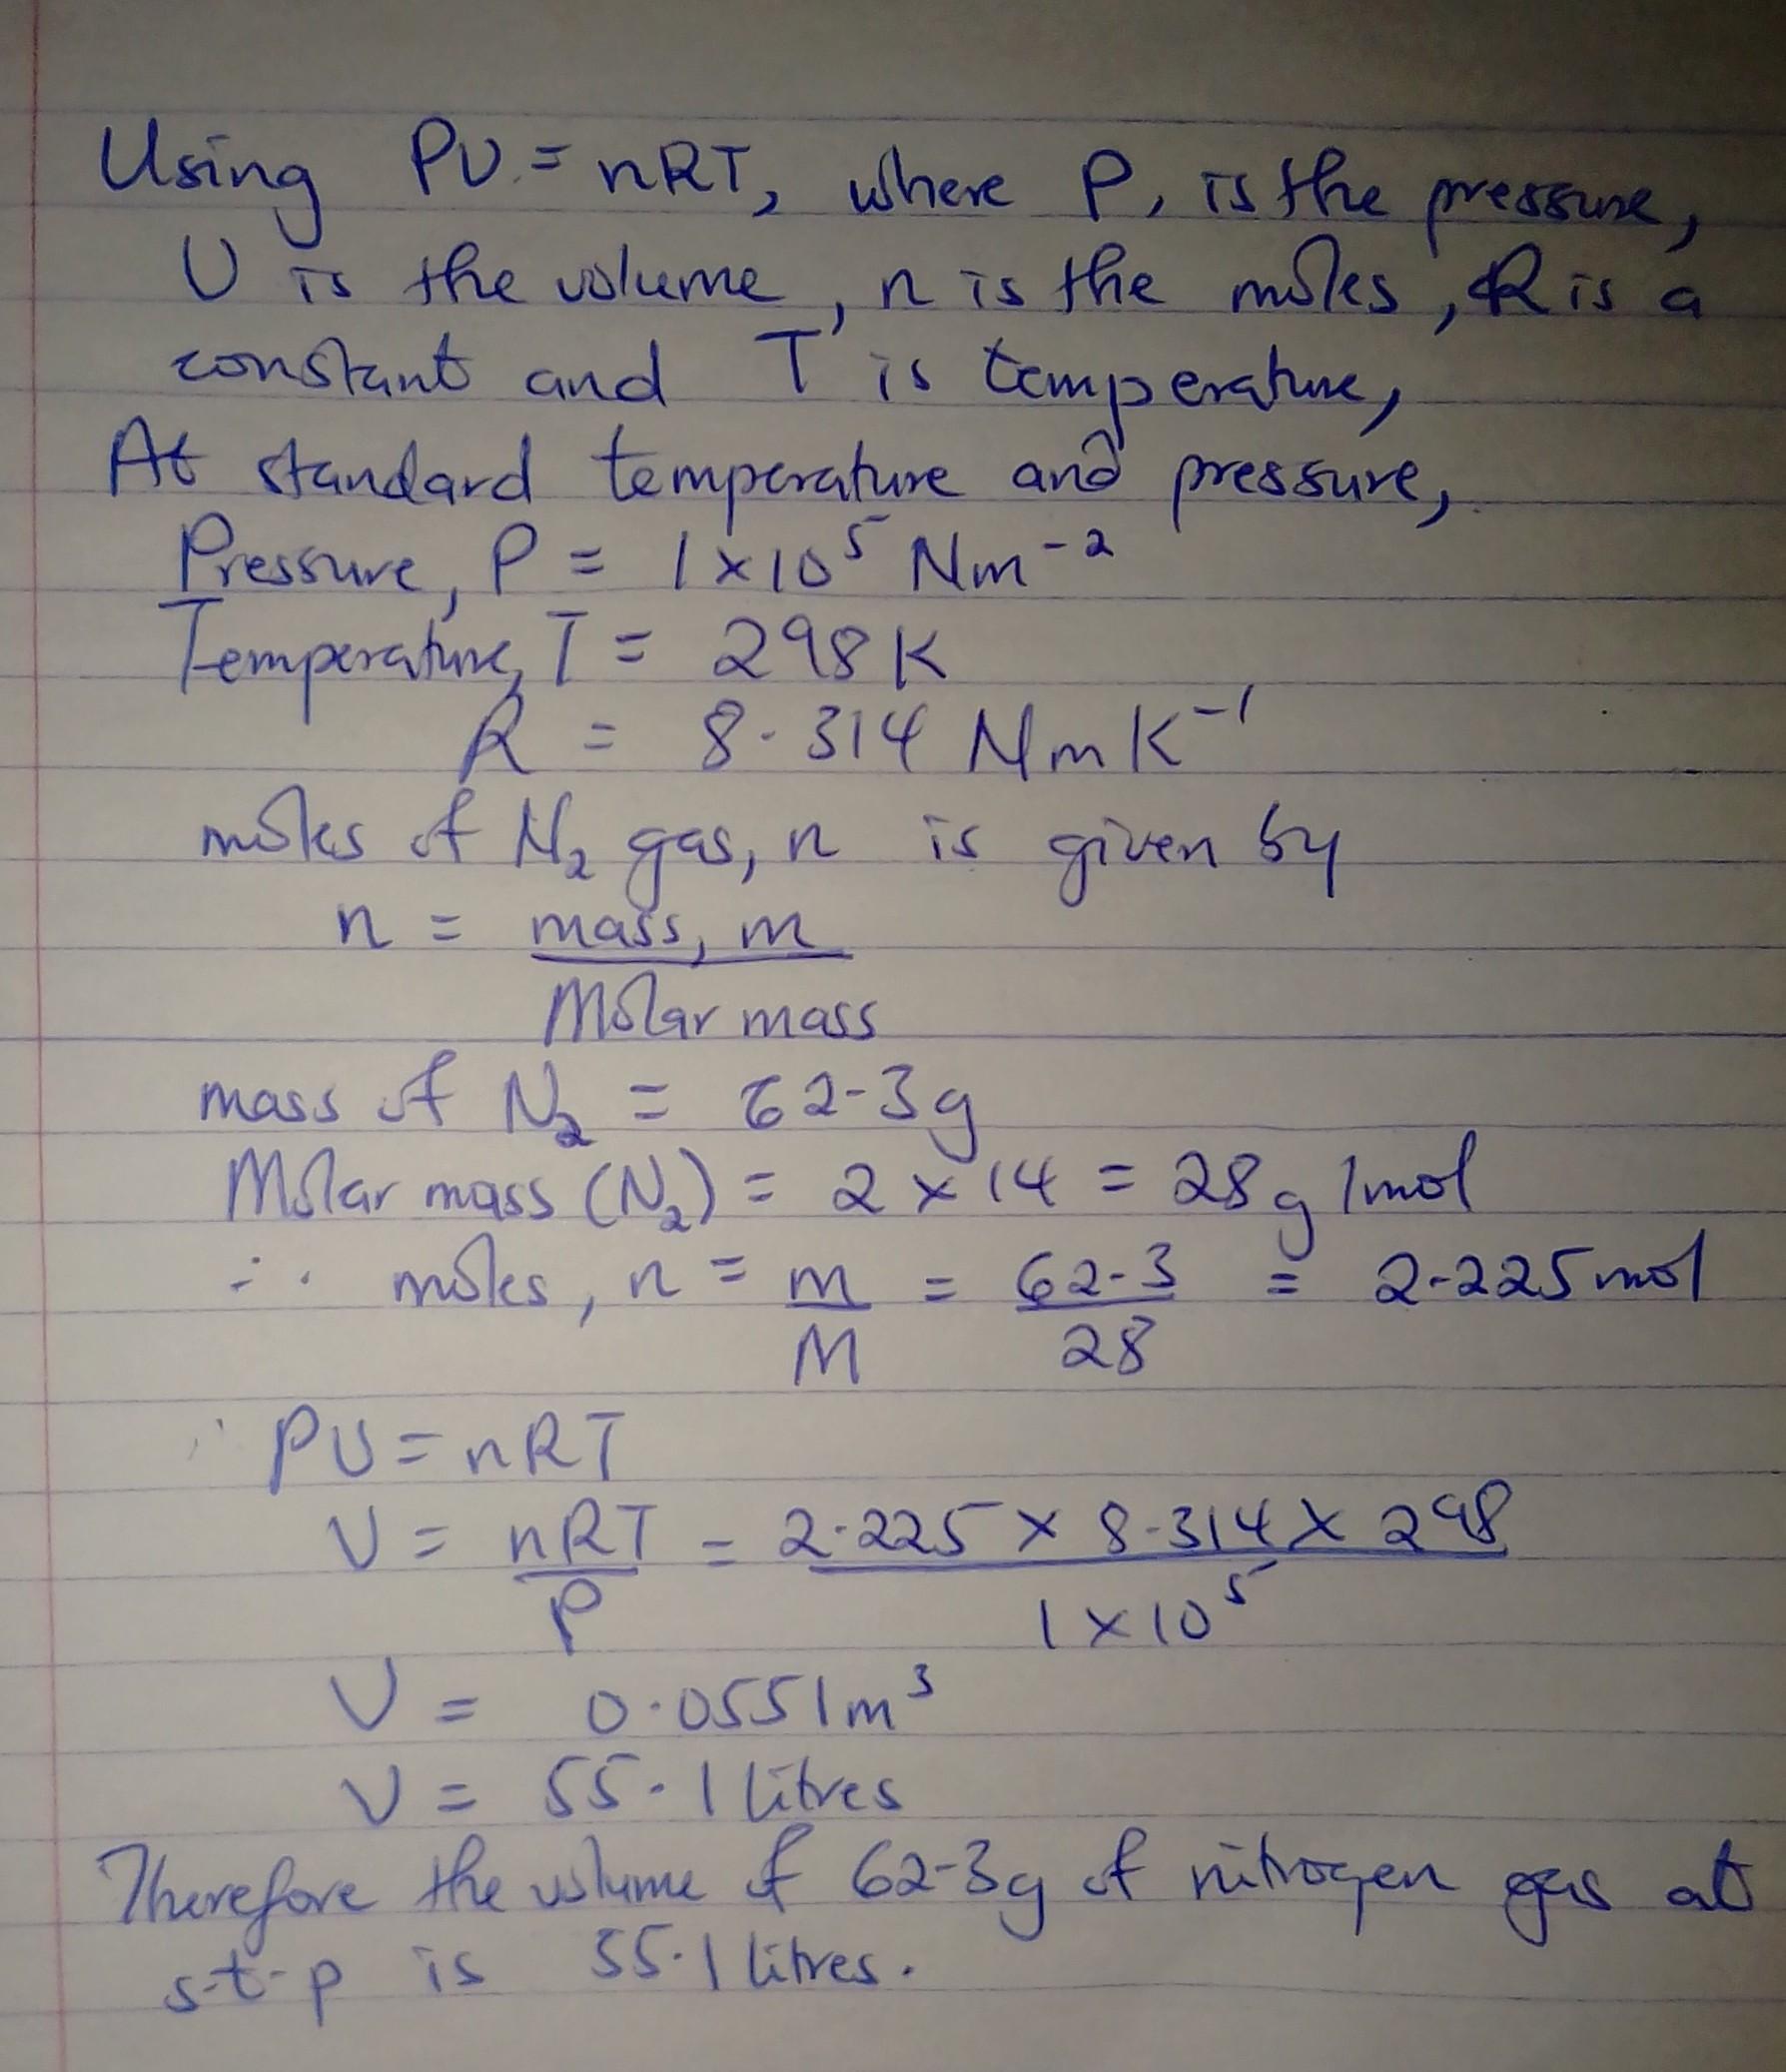 Using PV = nRT, where P, is the pressure,
V is the volume, n is the moles, R is a
constant and T is temperature,
At standard temperature and pressure,
Pressure, P = 1 × 10⁵ Nm⁻²
Temperature, T = 298 K
R = 8.314 NmK⁻¹
moles of N₂ gas, n is given by
n = mass, m
Molar mass
mass of N₂ = 62.3g
Molar mass (N₂) = 2 × 14 = 28g/mol
∴ moles, n = m = 62.3 = 2.225 mol
M 28
PV = nRT
V = nRT = 2.225 × 8.314 × 298
P 1 × 10⁵
V = 0.0551m³
V = 55.1 litres
Therefore the volume of 62.3g of nitrogen gas at
s.t.p is 55.1 litres.